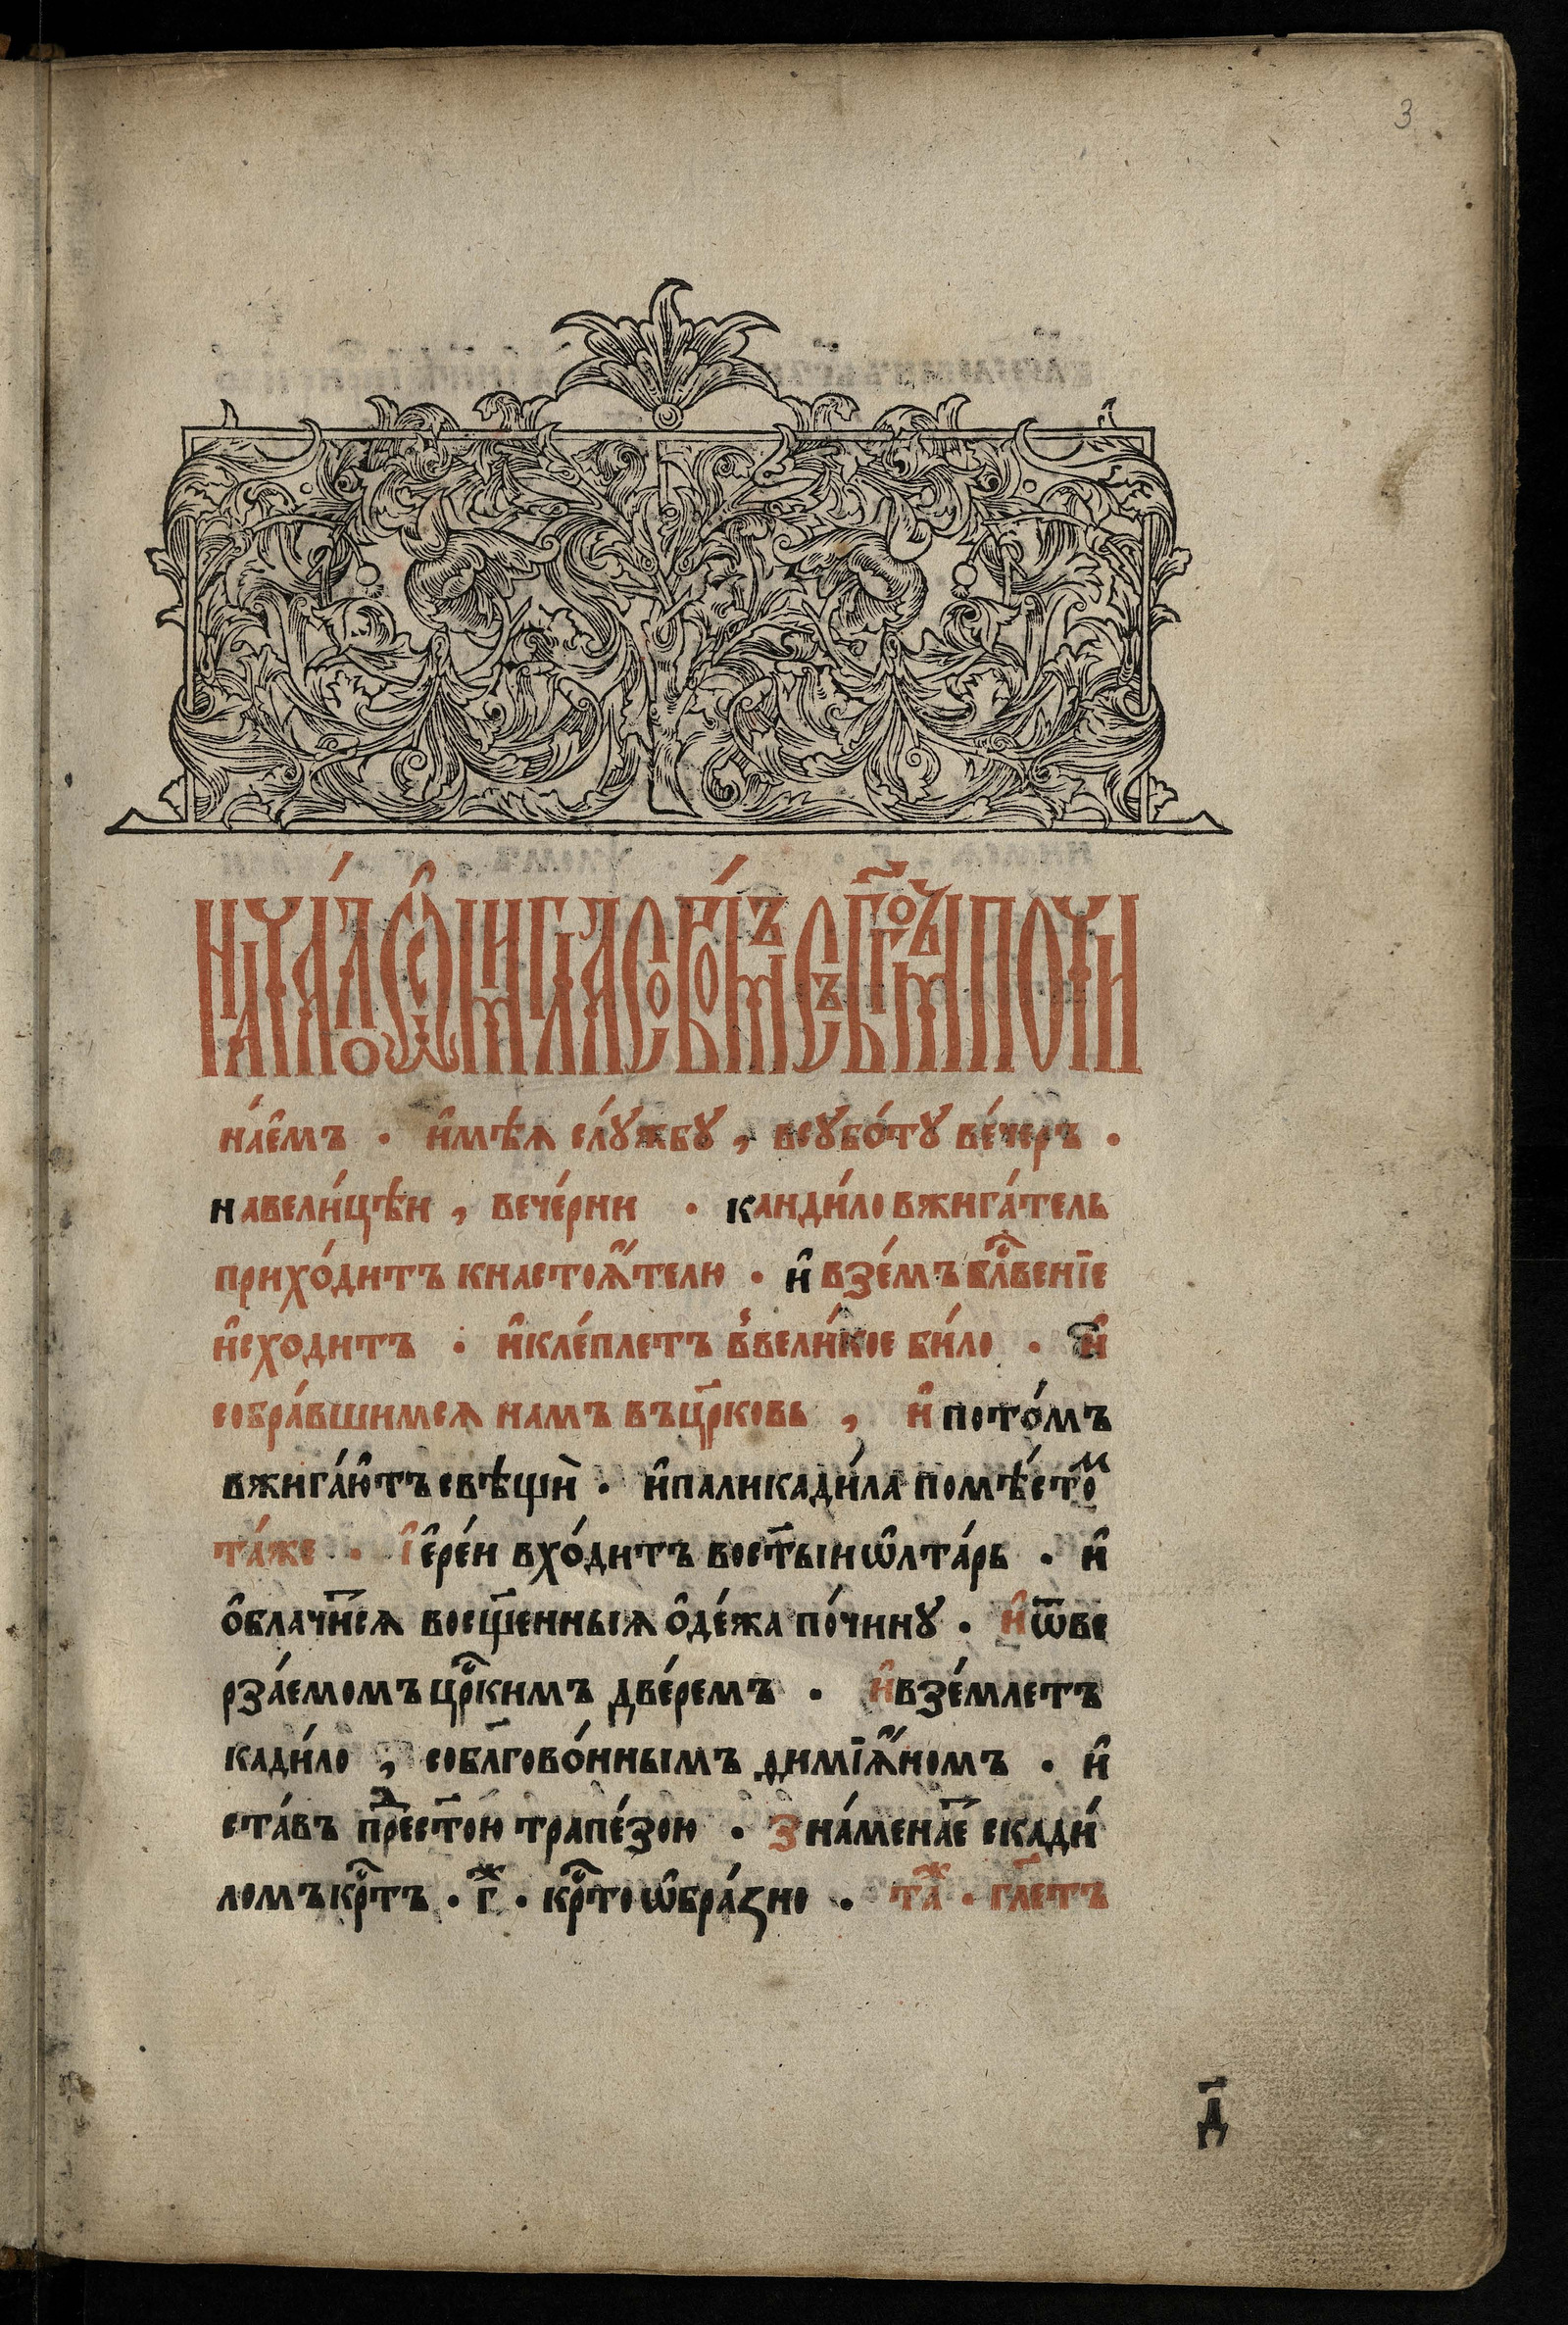 3
нача́ло ѻ҆съмигласово́мъ съ бг҃омъ почи
на́е҆мъ · и҆мѣ́ѧ слꙋ́жбꙋ , всꙋбо́тꙋ ве́черъ ·
навели́цѣи , вече́рни · канди́ло вжига́тель
прихо́дитъ кнастоѧ҆́телю · и҆ взе́мъ блⷭ҇веніе
и҆сходитъ · и҆кле́плетъ в҆вели́кое би́ло · и҆
собра́вшимсѧ намъ въцр҃ковь , и҆ пото́мъ
вжига́ю҆тъ свѣщѝ · и҆паликади́ла помѣ́стоⷨ
та́же · і҆е҆ре́и вхо́дитъ вост҃ыи ѡ҆лта́рь · и҆
ѻ҆блачи҃сѧ восщ҃енныѧ ѻ҆де́жа по́чинꙋ · и҆ ѿве
рза́емомъ црⷭ҇кимъ две́ремъ · и҆ взе́млетъ
кади́ло , собл҃гово́ннымъ димїѧ҆́номъ · и҆
ста́въ преⷣст҃ою трапе́зою · зна́мена҃е скади́
ломъ крⷭ҇тъ · г҃ⷤ · крⷭ҇тоѡ҆бра́зно · таⷤ · гл҃етъ
д҃